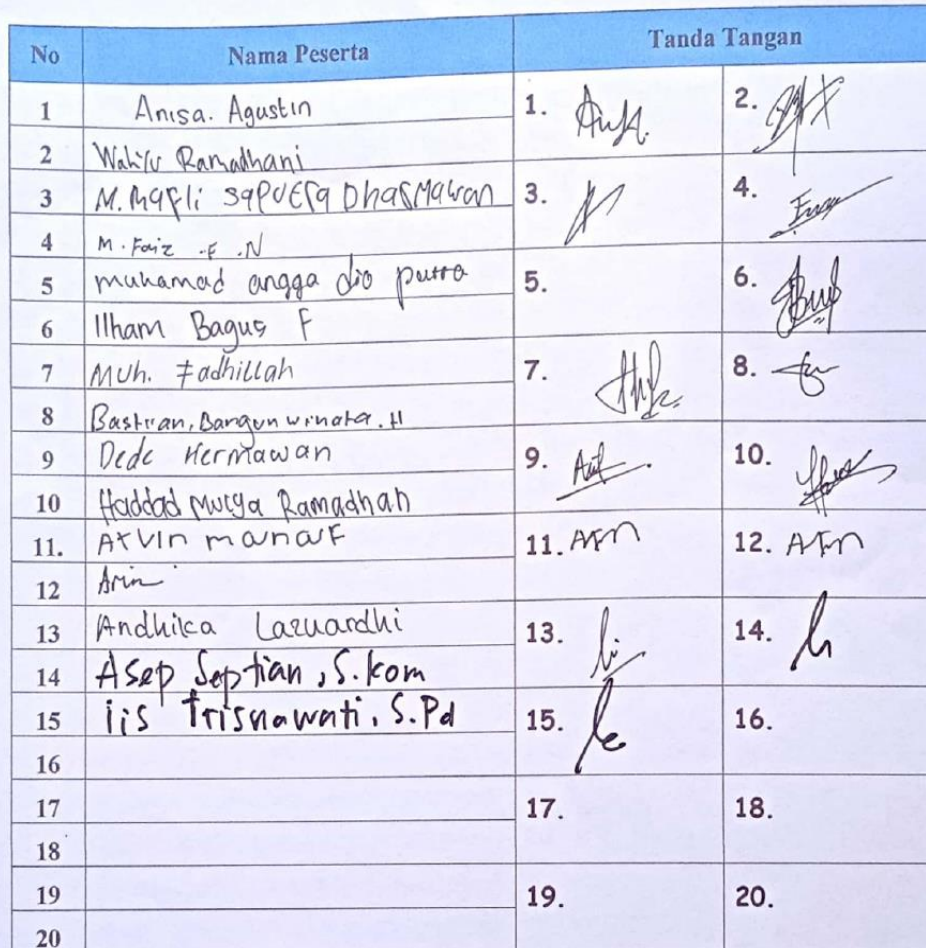 No Nama Peserta Tanda Tangan
1 Anisa. Agustin 1. 2.
2 Ramadhani
3 M. Rafli Saputra Dharmawan 3. 4.
4 M. Faiz .F .N
5 muhamad angga dio putra 5. 6.
6 Ilham Bagus F
7 Muh. Fadhillah 7. 8.
8 Bastian, Bangun winata. H
9 Dede Hermawan 9. 10.
10 Haddad Mulya Ramadhan
11. Arvin manaf 11. 12.
12
13 Andhika Lazuardhi 13. 14.
14 Asep Septian, S.kom
15 iis Trisnawati, S.Pd 15. 16.
16
17 17. 18.
18
19 19. 20.
20